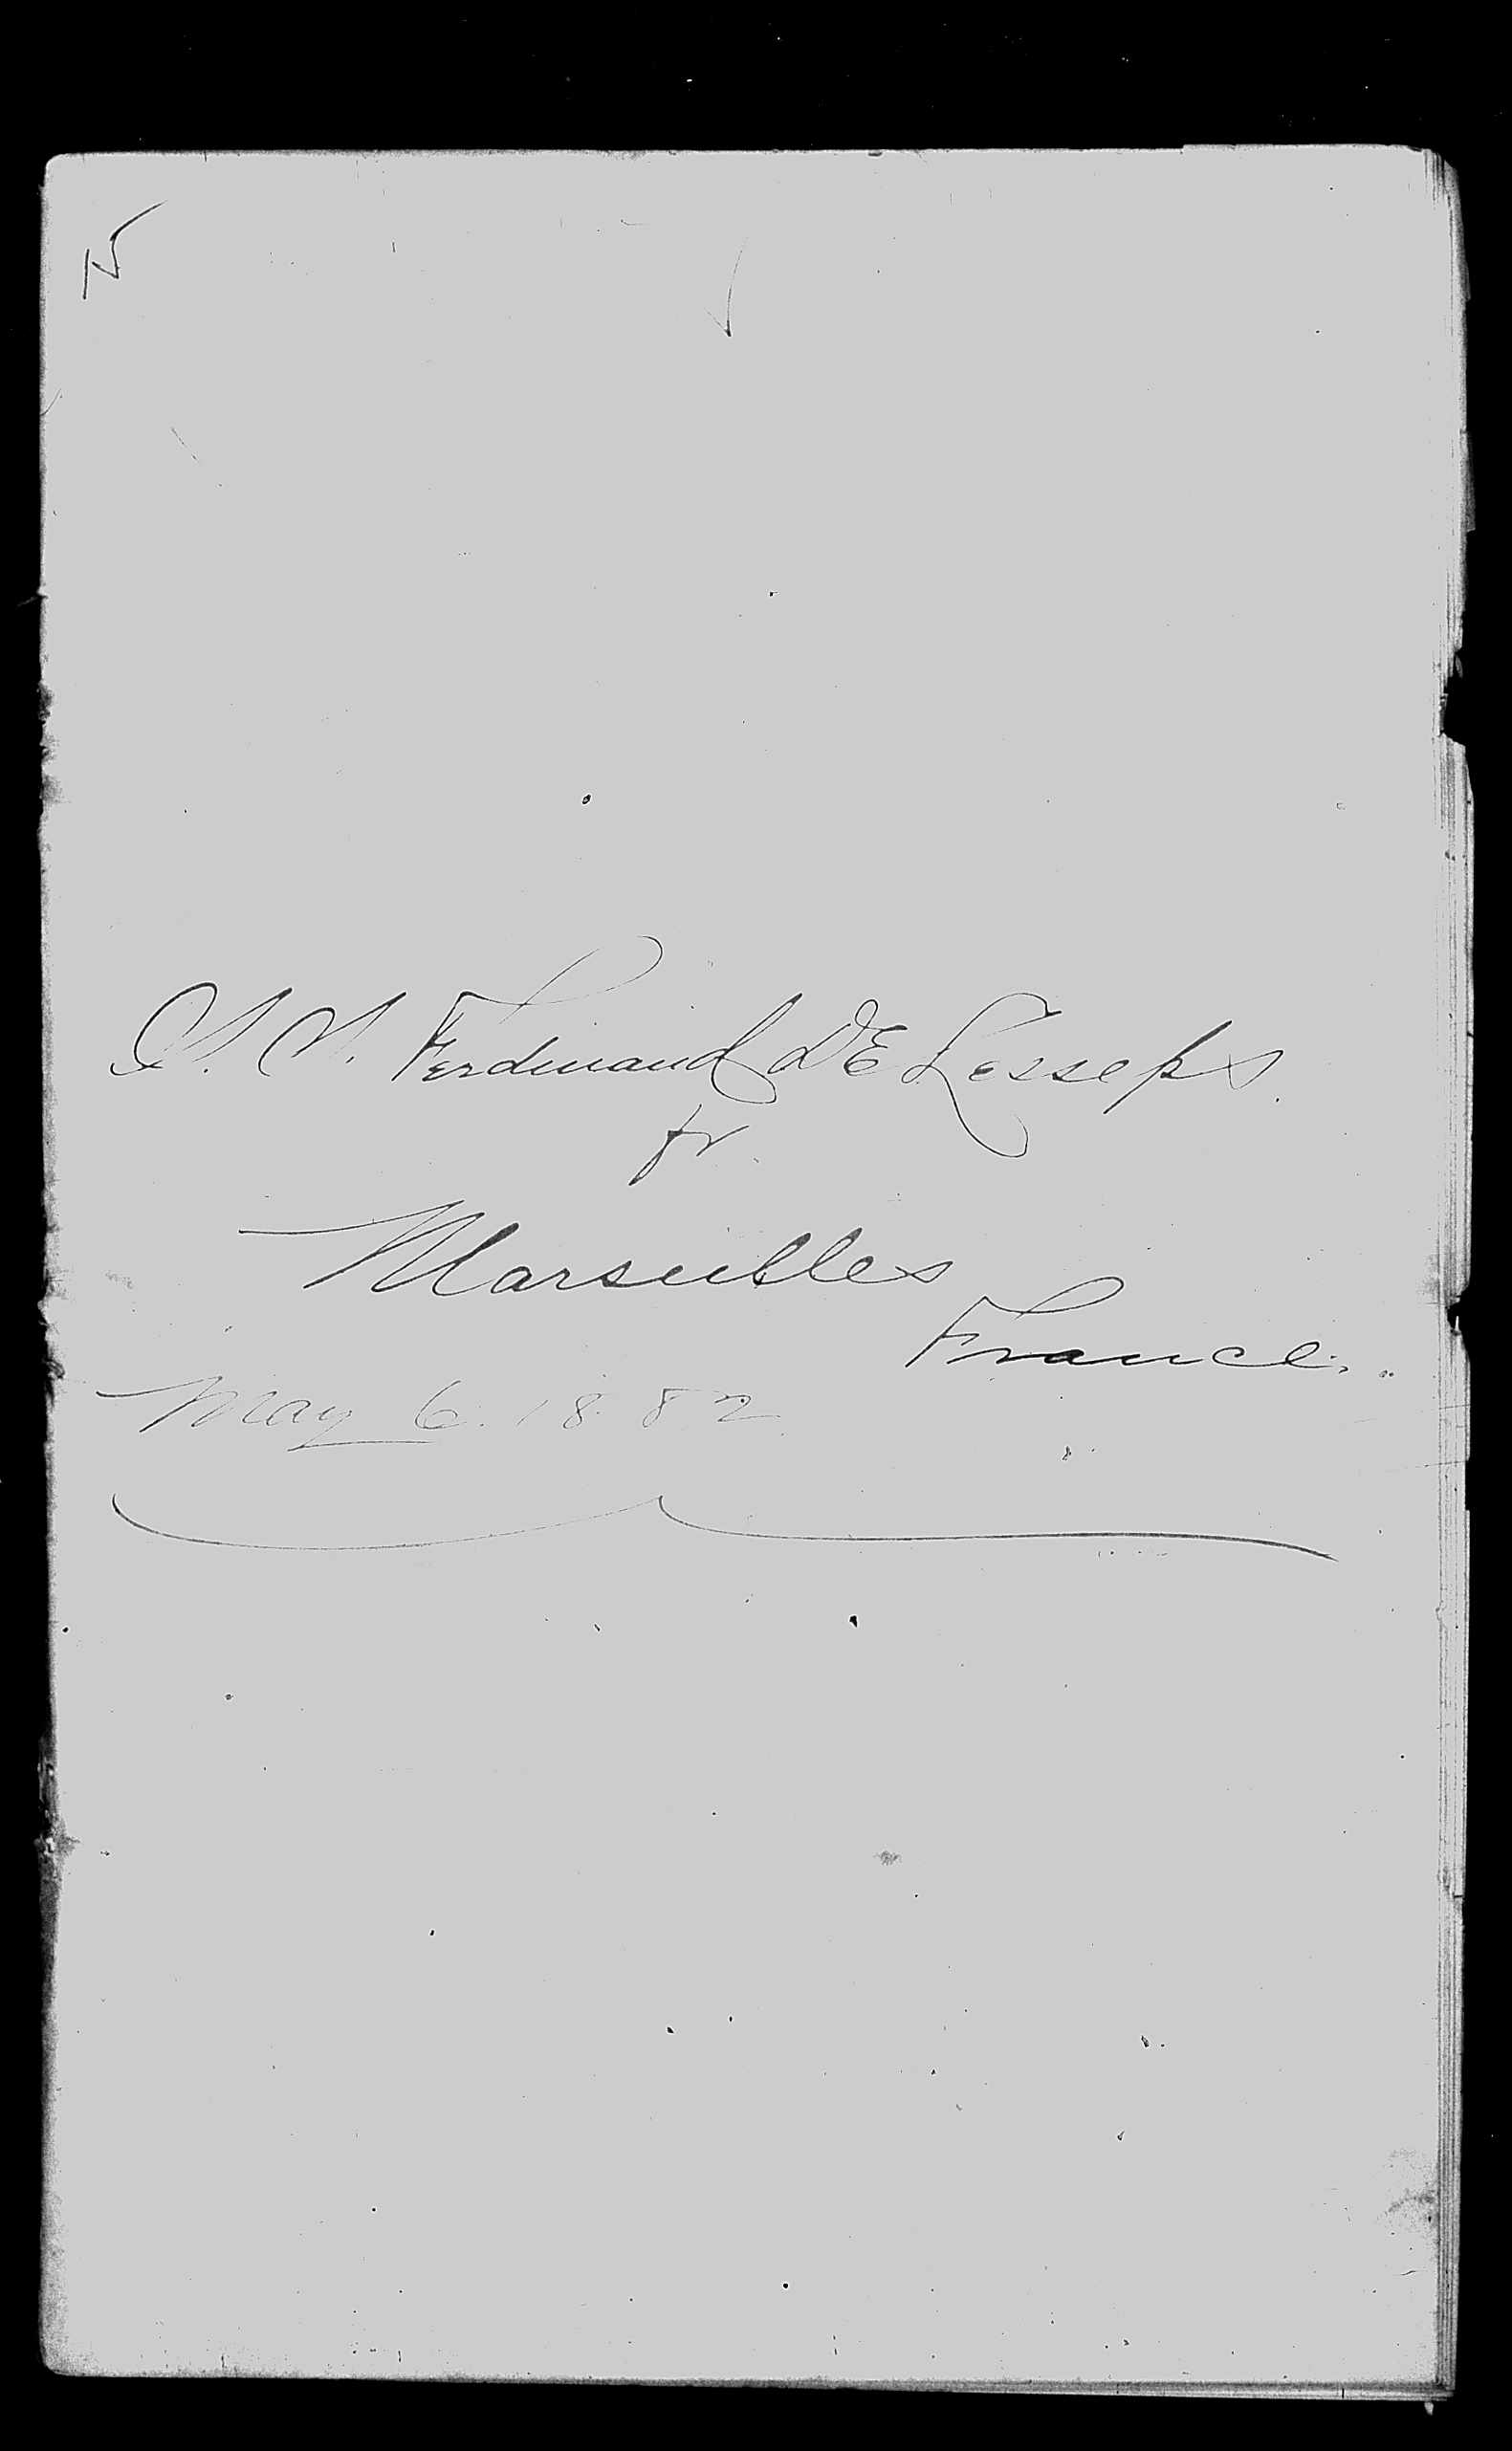 S. S. Ferdinand DE Lesseps.
fr
Marseilles
France..
May 6. 1882